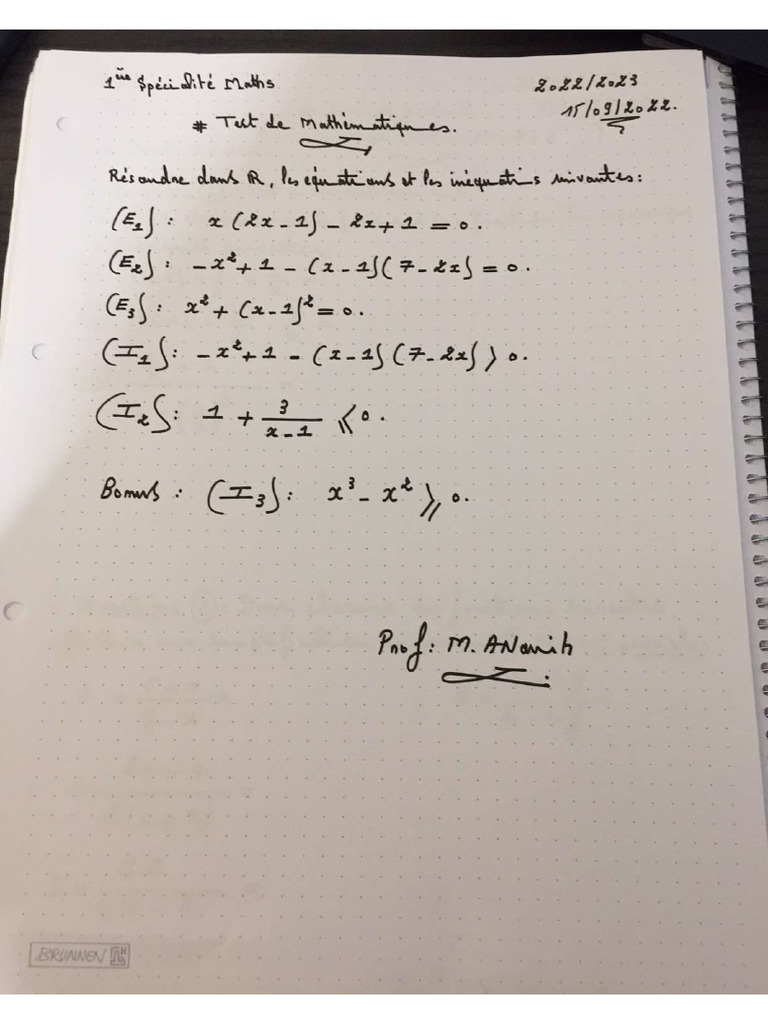 1ère Spécialité Maths
2022/2023
15/09/2022.
# Test de Mathématiques.
Résoudre dans ℝ, les équations et les inéquations suivantes:
(E₁): x(2x-1)-2x+1=0.
(E₂): -x²+1-(x-1)(7-2x)=0.
(E₃): x²+(x-1)²=0.
(I₁): -x²+1-(x-1)(7-2x)>0.
(I₂): 1+3/(x-1)⩽0.
Bonus: (I₃): x³-x²⩾0.
Prof: M.
BRUNNEN